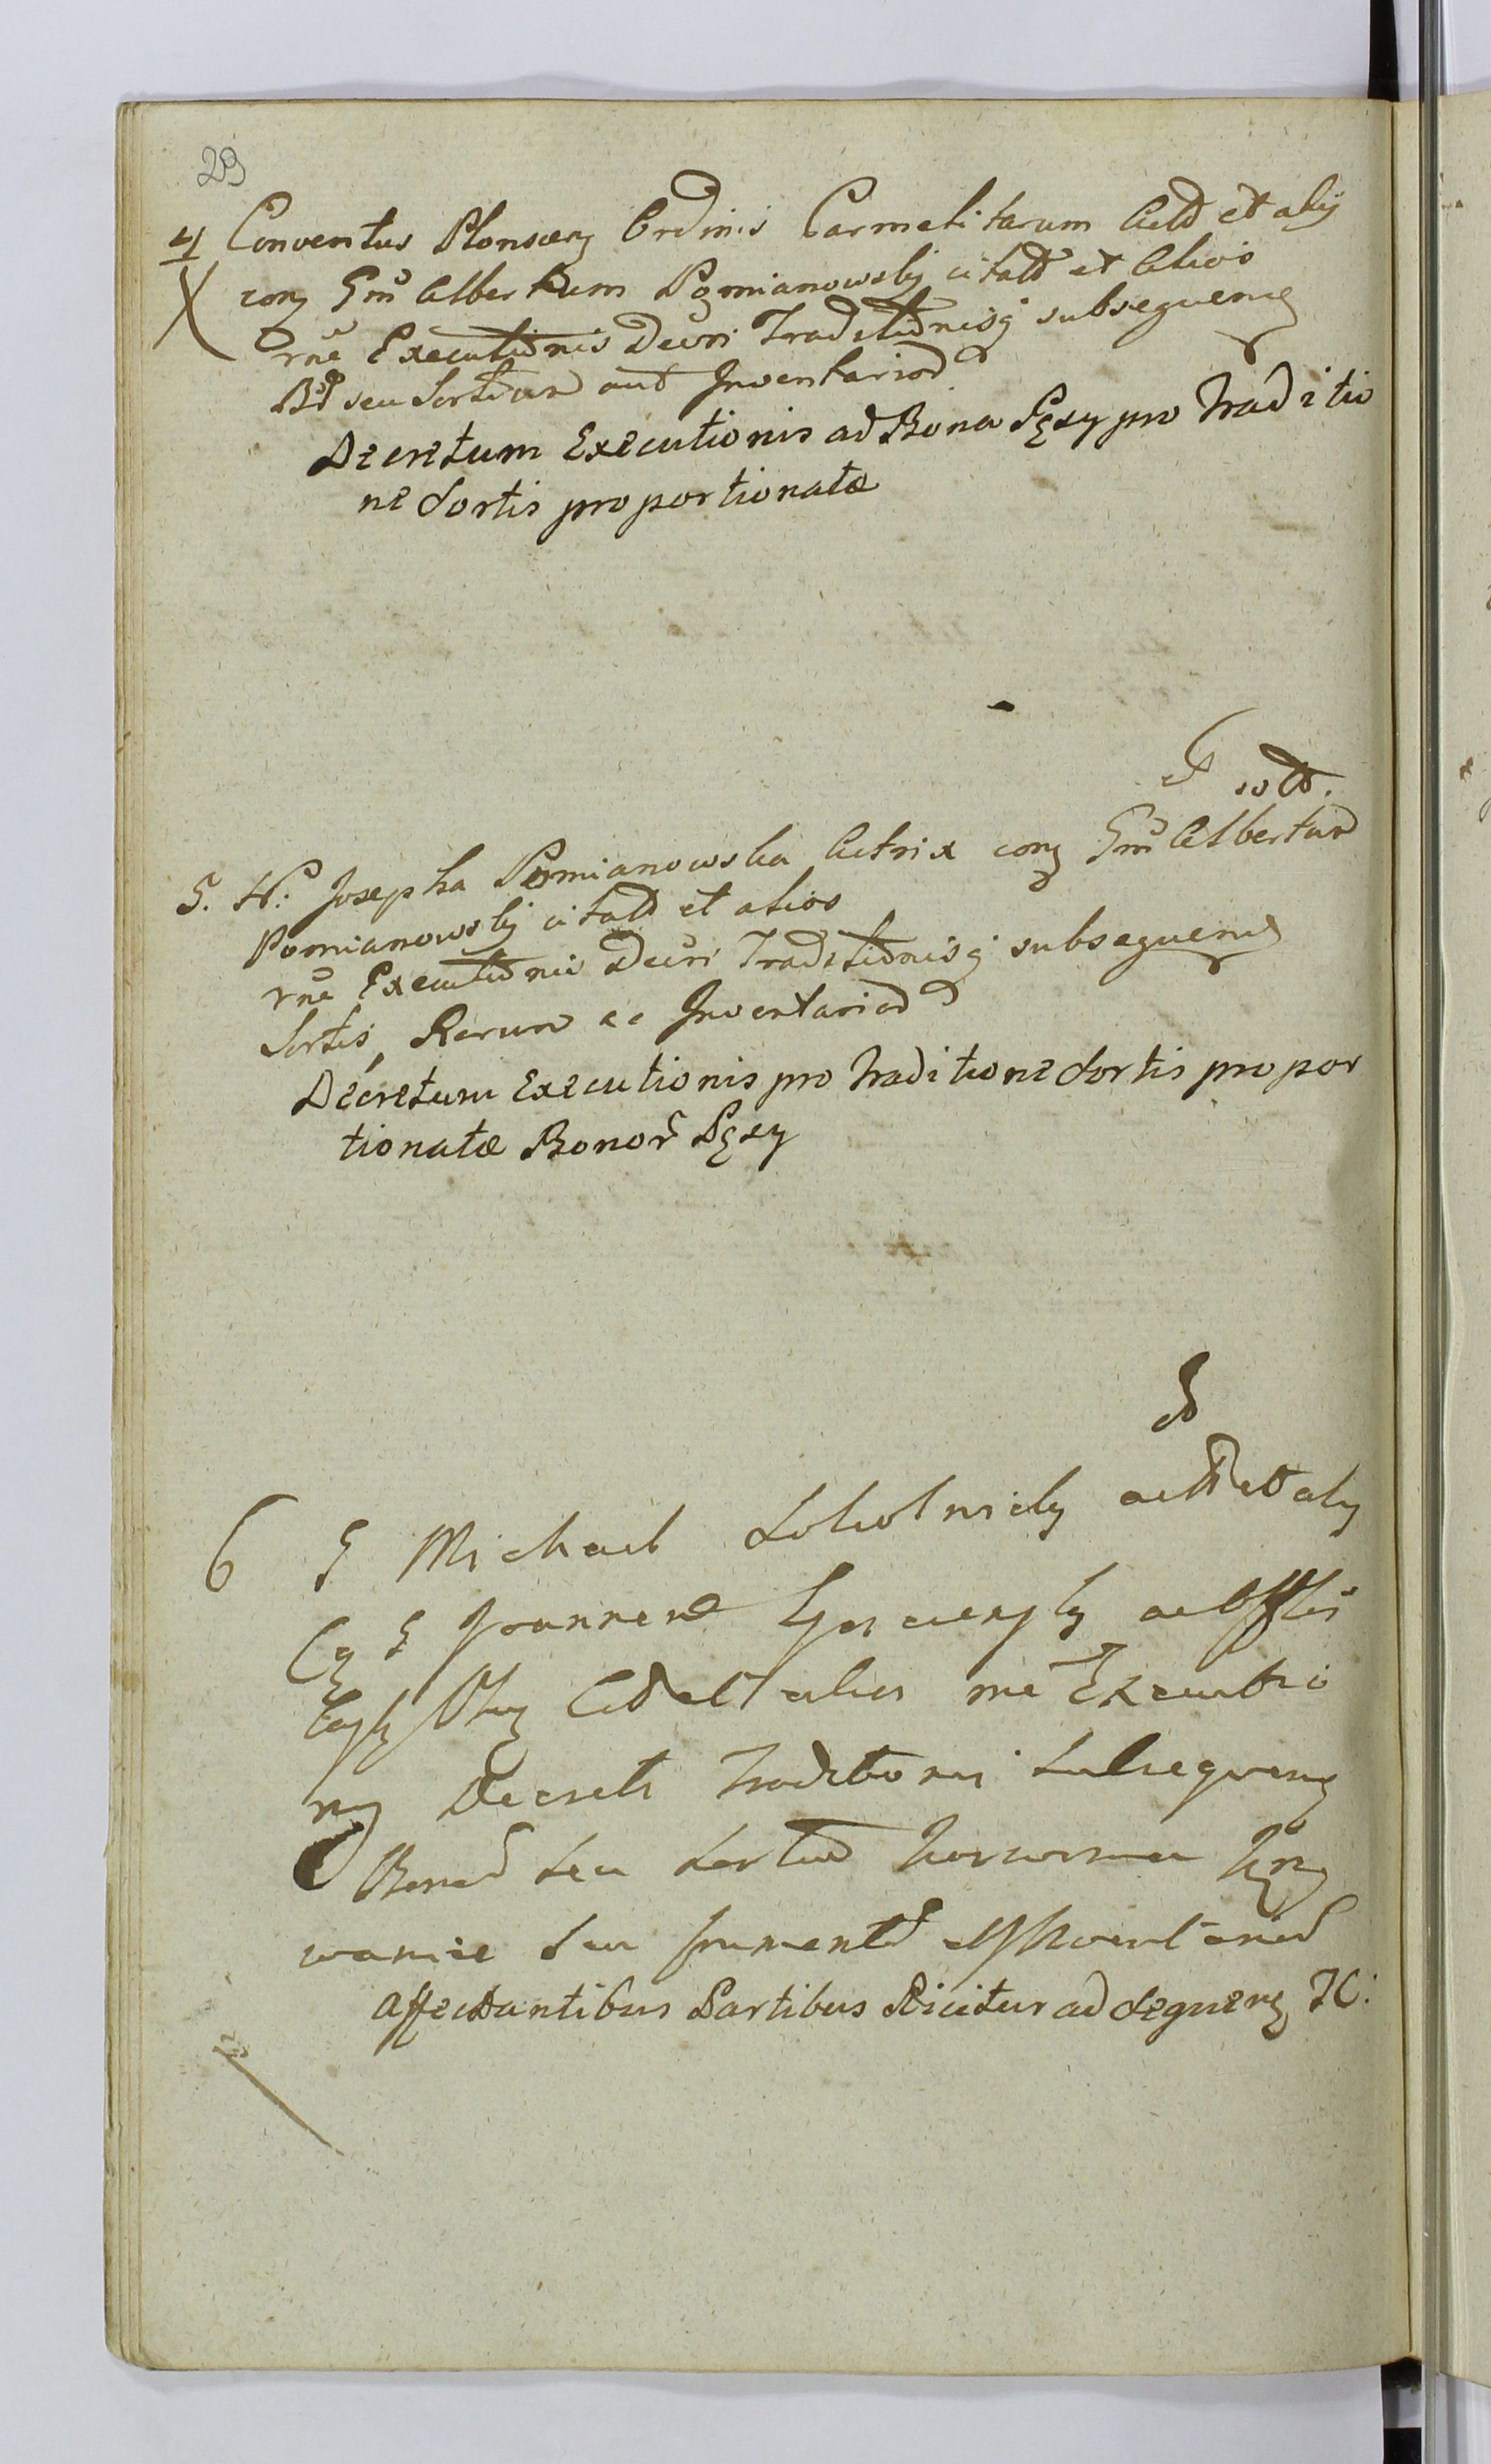 29
4 Conventus Plonscen Ordinis Carmelitarum Act et alÿ
con Gm Albertum Pomianowskÿ citatt et Alios
rne Executionis Decri Traditionisq subsequen
Bo seu Sortium aut Inventariod
Decretum Executionis ad Bona Pęsy pro Traditio
ne Sortis proportionatæ
solt.
5. H: Josepha Pomianowska Actrix con Gm Albertum
Pomianowskÿ citatt et alios
rne Executionis Decri Traditionisq subsequen
Sortis, Rerum ac Inventariod
Decretum Executionis pro Traditione Sortis propor
tionatæ Bonor Pęsy
6 G Michael act et aly
G Joannem
et alios rne Executio
nis Decreti Traditionis subsequen
Bonor seu Sortium
wanie seu frument
Affectantibus Partibus Dicitur ad Sequen